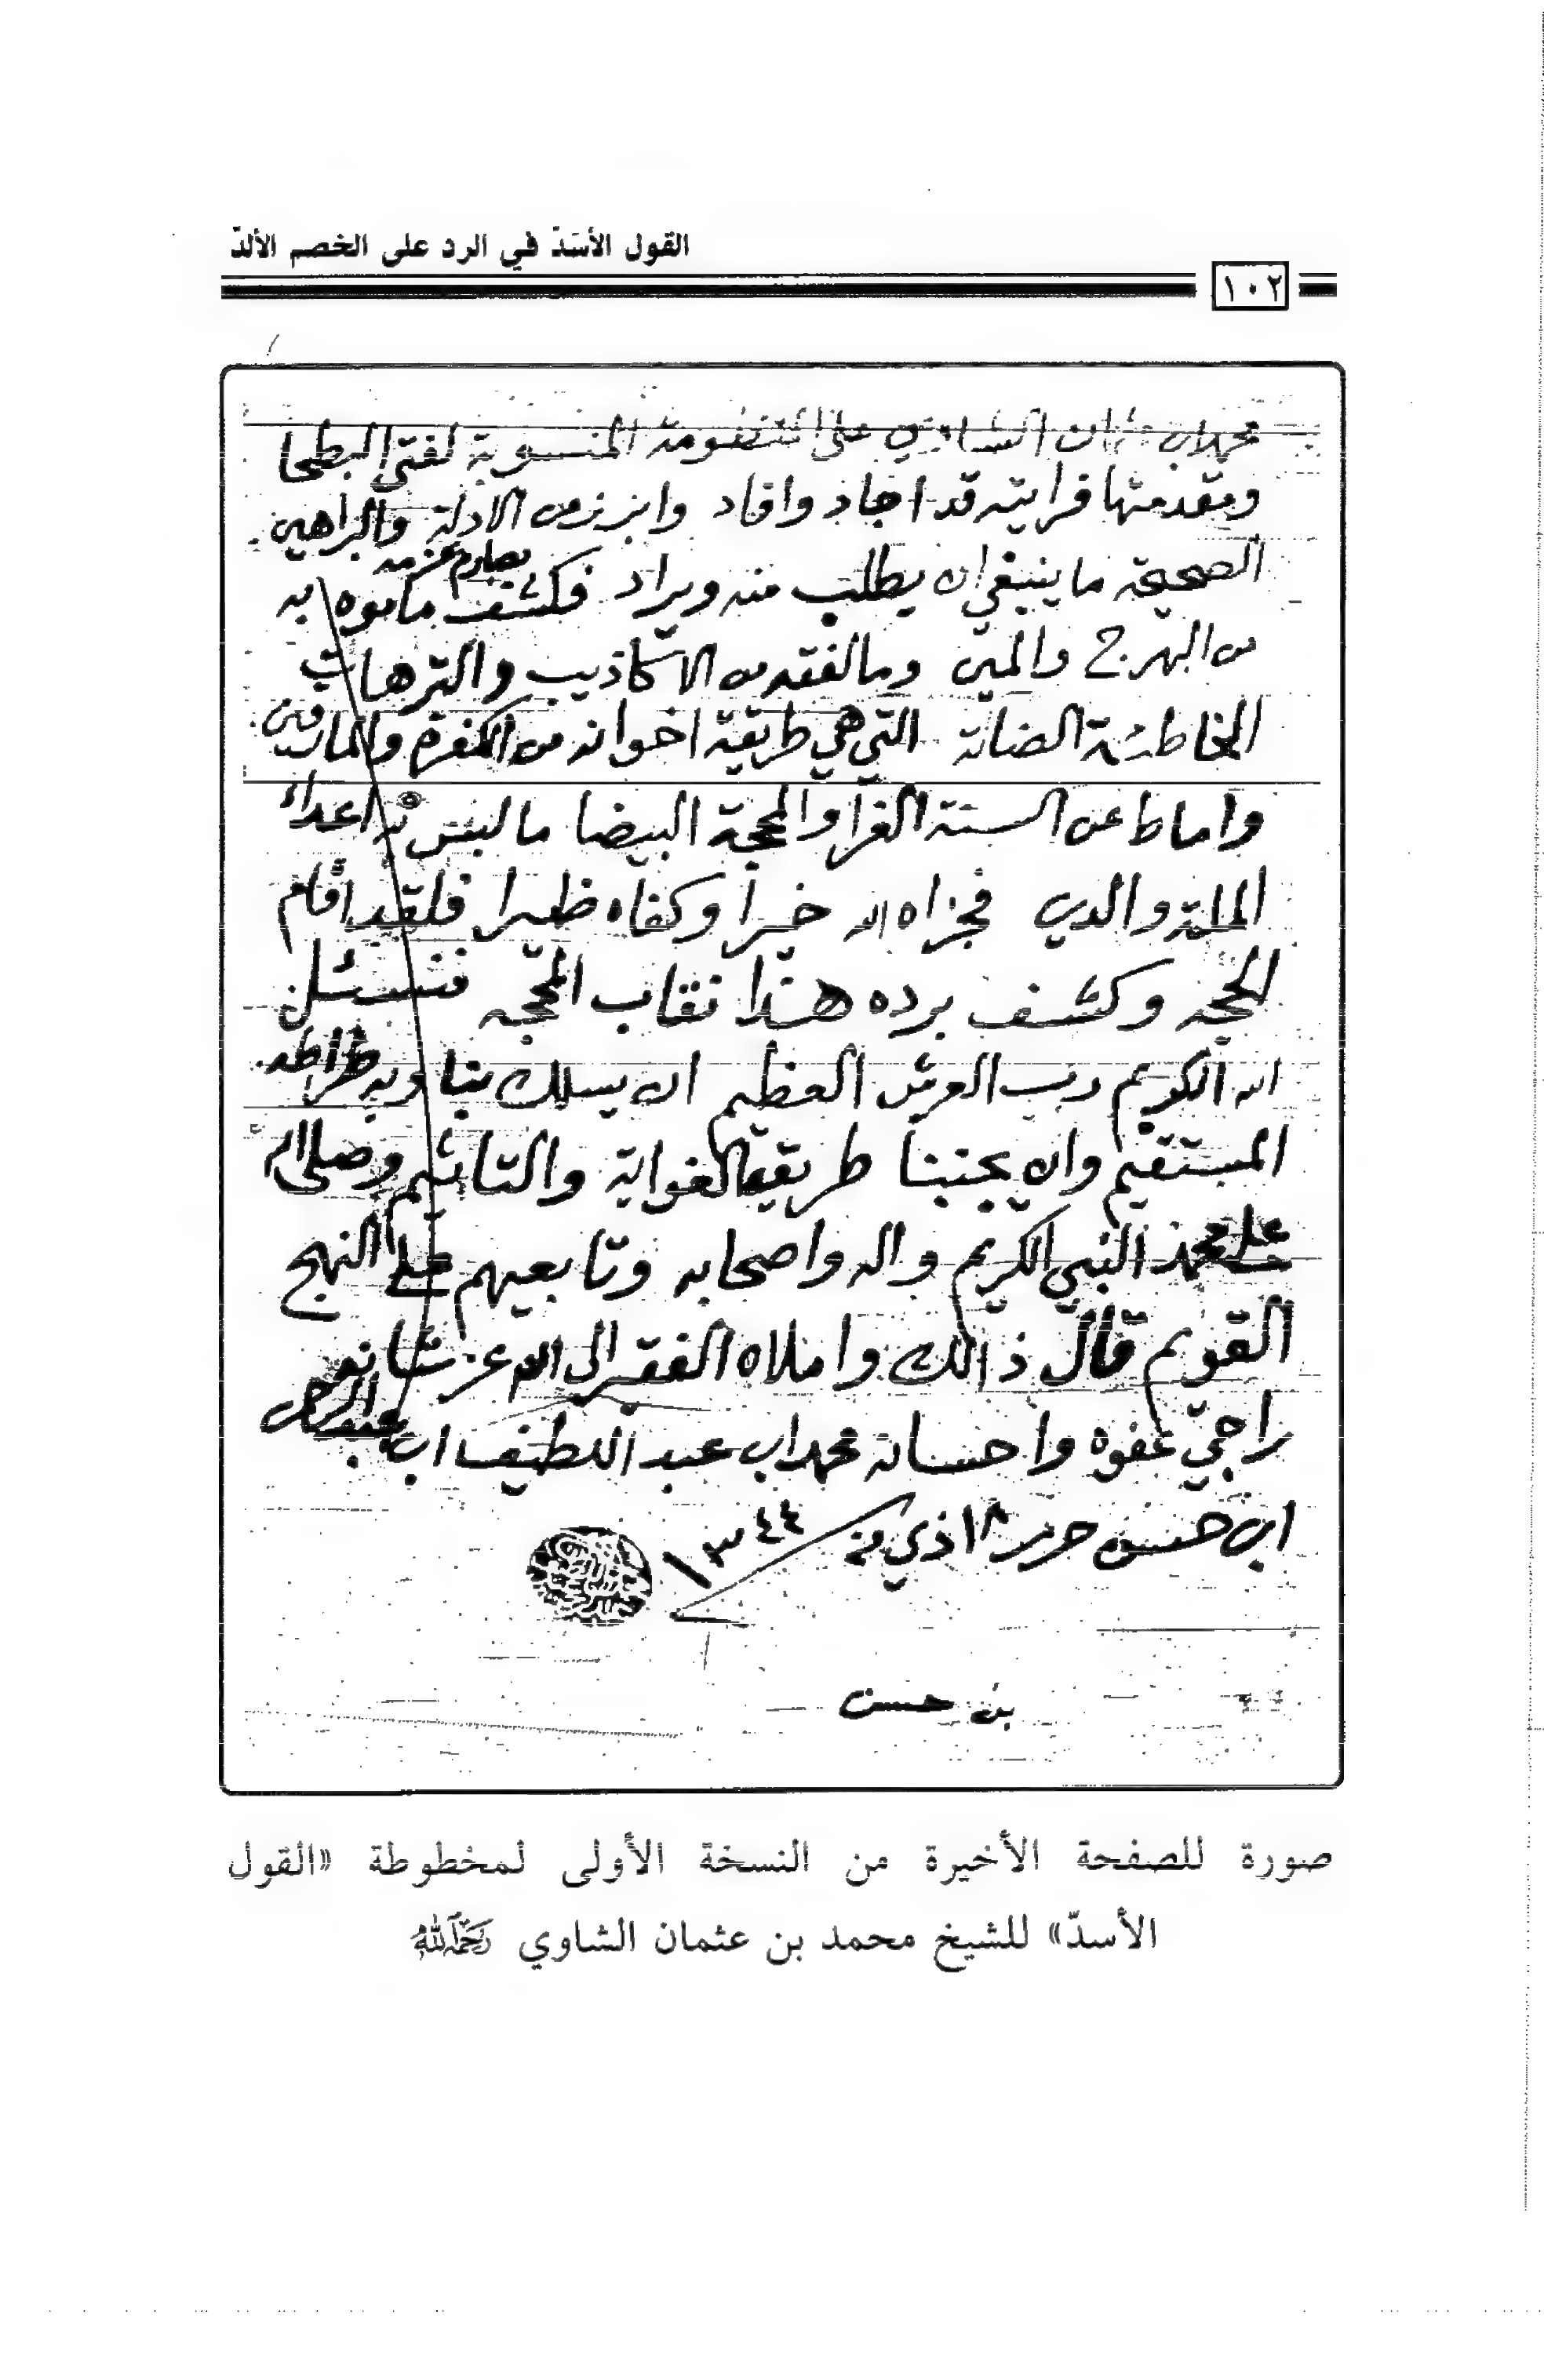 القول الأسَدّ في الرد على الخصم الألدّ
١٠٢
محمد ابن عثمان الشاوي على المنظومة المنسوبة لفتى البطحا
ومقدمتها فرايته قد اجاد وافاد وابرز من الادلة والبراهين
الصحيحة ما ينبغي ان يطلب منه ويراد فكشف بصارم عزمه ما موه به
من البهرج والمين وما لفقه من الاكاذيب والترهات
الخاطئة الضالة التي هي طريقة اخوانه من الكفرة والمارقين
واماط عن السنة الغرا والمحجة البيضا ما لبس به اعداء
الملة والدين فجزاه الله خيرا وكفاه ظيرا فلقد أقام
الحجه وكشف برده هذا نقاب المحجه فنسئل
الله الكريم رب العرش العظيم ان يسلك بنا وبه صراطه
المستقيم وان يجنبنا طريقة الغواية والتاثيم وصلى الله
على محمد النبي الكريم واله واصحابه وتابعيهم على النهج
القويم قال ذالك واملاه الفقير الى الله عز شانه
راجي عفوه واحسانه محمد ابن عبد اللطيف ابن عبد الرحمن
ابن حسن حرر ١٨ ذي ١٣٤٤
بن حسن
صورة للصفحة الأخيرة من النسخة الأولى لمخطوطة «القول
الأسدّ» للشيخ محمد بن عثمان الشاوي رَحِمَهُ اللهُ